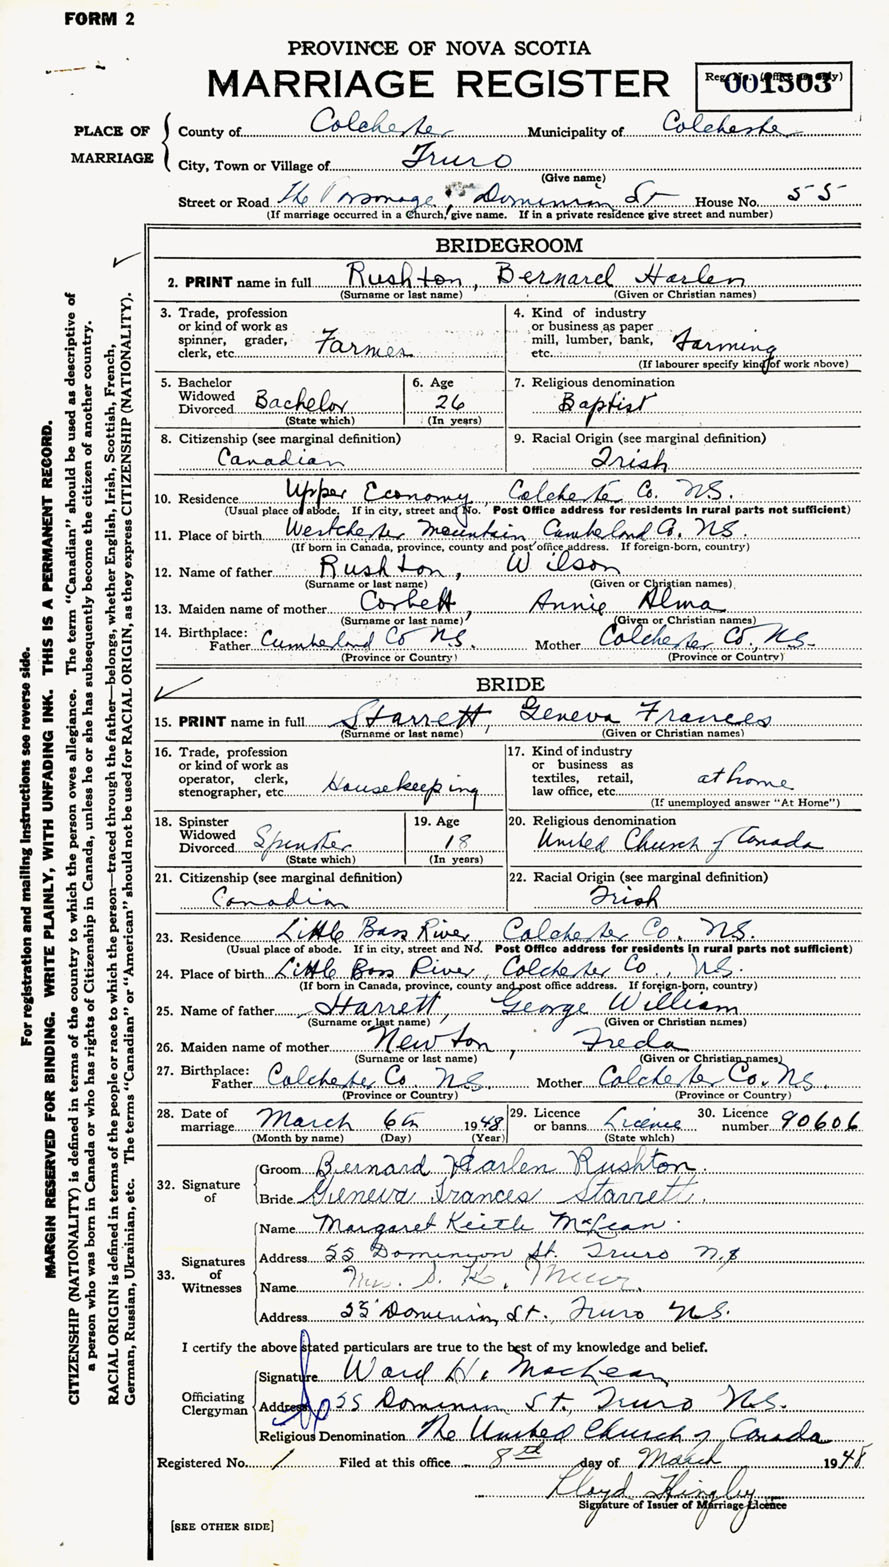 FORM 2
PROVINCE OF NOVA SCOTIA
MARRIAGE REGISTER
Reg. No. (Office use only)
001503
PLACE OF MARRIAGE
County of Colchester Municipality of Colchester
City, Town or Village of Truro
(Give name)
Street or Road The Parsonage, Dominion St House No. 55
(If marriage occurred in a Church, give name. If in a private residence give street and number)
BRIDEGROOM
2. PRINT name in full Rushton, Bernard Harlen
(Surname or last name) (Given or Christian names)
3. Trade, profession or kind of work as spinner, grader, clerk, etc. Farmer
4. Kind of industry or business as paper mill, lumber, bank, etc. Farming
(If labourer specify kind of work above)
5. Bachelor Widowed Divorced Bachelor
(State which)
6. Age 26
(In years)
7. Religious denomination
Baptist
8. Citizenship (see marginal definition)
Canadian
9. Racial Origin (see marginal definition)
Irish
10. Residence Upper Economy, Colchester Co. N.S.
(Usual place of abode. If in city, street and No. Post Office address for residents in rural parts not sufficient)
11. Place of birth Westchester Mountain Cumberland Co. N.S.
(If born in Canada, province, county and post office address. If foreign-born, country)
12. Name of father Rushton, Wilson
(Surname or last name) (Given or Christian names)
13. Maiden name of mother Corbett, Annie Alma
(Surname or last name) (Given or Christian names)
14. Birthplace: Father Cumberland Co N.S. Mother Colchester Co, N.S.
(Province or Country) (Province or Country)
BRIDE
15. PRINT name in full Starrett, Geneva Frances
(Surname or last name) (Given or Christian names)
16. Trade, profession or kind of work as operator, clerk, stenographer, etc. Housekeeping
17. Kind of industry or business as textiles, retail, law office, etc. at home
(If unemployed answer "At Home")
18. Spinster Widowed Divorced Spinster
(State which)
19. Age 18
(In years)
20. Religious denomination
United Church of Canada
21. Citizenship (see marginal definition)
Canadian
22. Racial Origin (see marginal definition)
Irish
23. Residence Little Bass River Colchester Co. N.S.
(Usual place of abode. If in city, street and No. Post Office address for residents in rural parts not sufficient)
24. Place of birth Little Bass River, Colchester Co., N.S.
(If born in Canada, province, county and post office address. If foreign-born, country)
25. Name of father Starrett, George William
(Surname or last name) (Given or Christian names)
26. Maiden name of mother Newton, Freda
(Surname or last name) (Given or Christian names)
27. Birthplace: Father Colchester Co. N.S. Mother Colchester Co. N.S.
(Province or Country) (Province or Country)
28. Date of marriage March 6th 1948
(Month by name) (Day) (Year)
29. Licence or banns Licence
(State which)
30. Licence number 90606
32. Signature of
Groom Bernard Harlen Rushton.
Bride Geneva Frances Starrett.
33. Signatures of Witnesses
Name Margaret Keith McLean.
Address 55 Dominion St. Truro N.S
Name Mrs. S. K.
Address 55 Dominion St., Truro N.S.
I certify the above stated particulars are true to the best of my knowledge and belief.
Officiating Clergyman
Signature Ward H. MacLean
Address 55 Dominion St., Truro N.S.
Religious Denomination The United Church of Canada
Registered No. 1 Filed at this office 8th day of March 1948
Lloyd
Signature of Issuer of Marriage Licence
[SEE OTHER SIDE]
For registration and mailing instructions see reverse side.
MARGIN RESERVED FOR BINDING. WRITE PLAINLY, WITH UNFADING INK. THIS IS A PERMANENT RECORD.
CITIZENSHIP (NATIONALITY) is defined in terms of the country to which the person owes allegiance. The term "Canadian" should be used as descriptive of
a person who was born in Canada or who has rights of Citizenship in Canada, unless he or she has subsequently become the citizen of another country.
RACIAL ORIGIN is defined in terms of the people or race to which the person—traced through the father—belongs, whether English, Irish, Scottish, French,
German, Russian, Ukrainian, etc. The terms "Canadian" or "American" should not be used for RACIAL ORIGIN, as they express CITIZENSHIP (NATIONALITY).